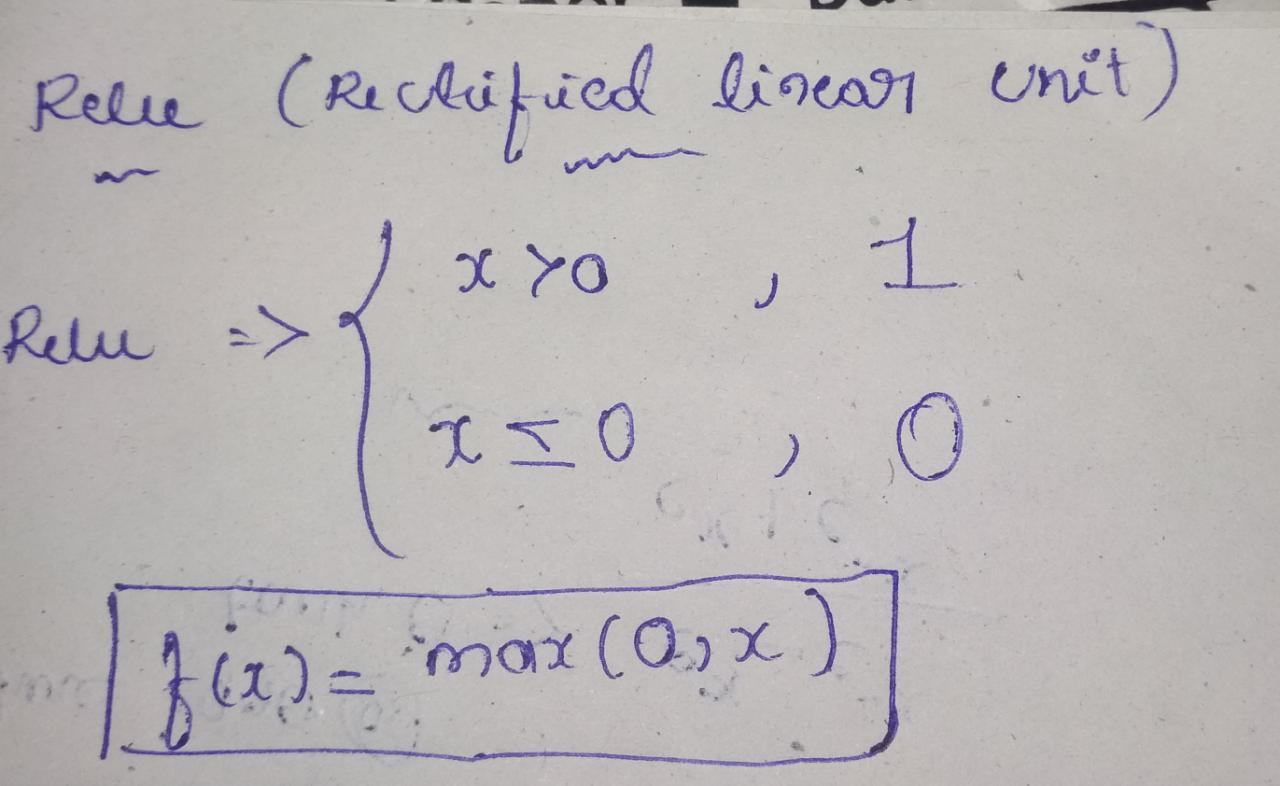 Relu (Rectified linear unit)
Relu => { x > 0 , 1
x ≤ 0 , 0
f(x) = max(0, x)